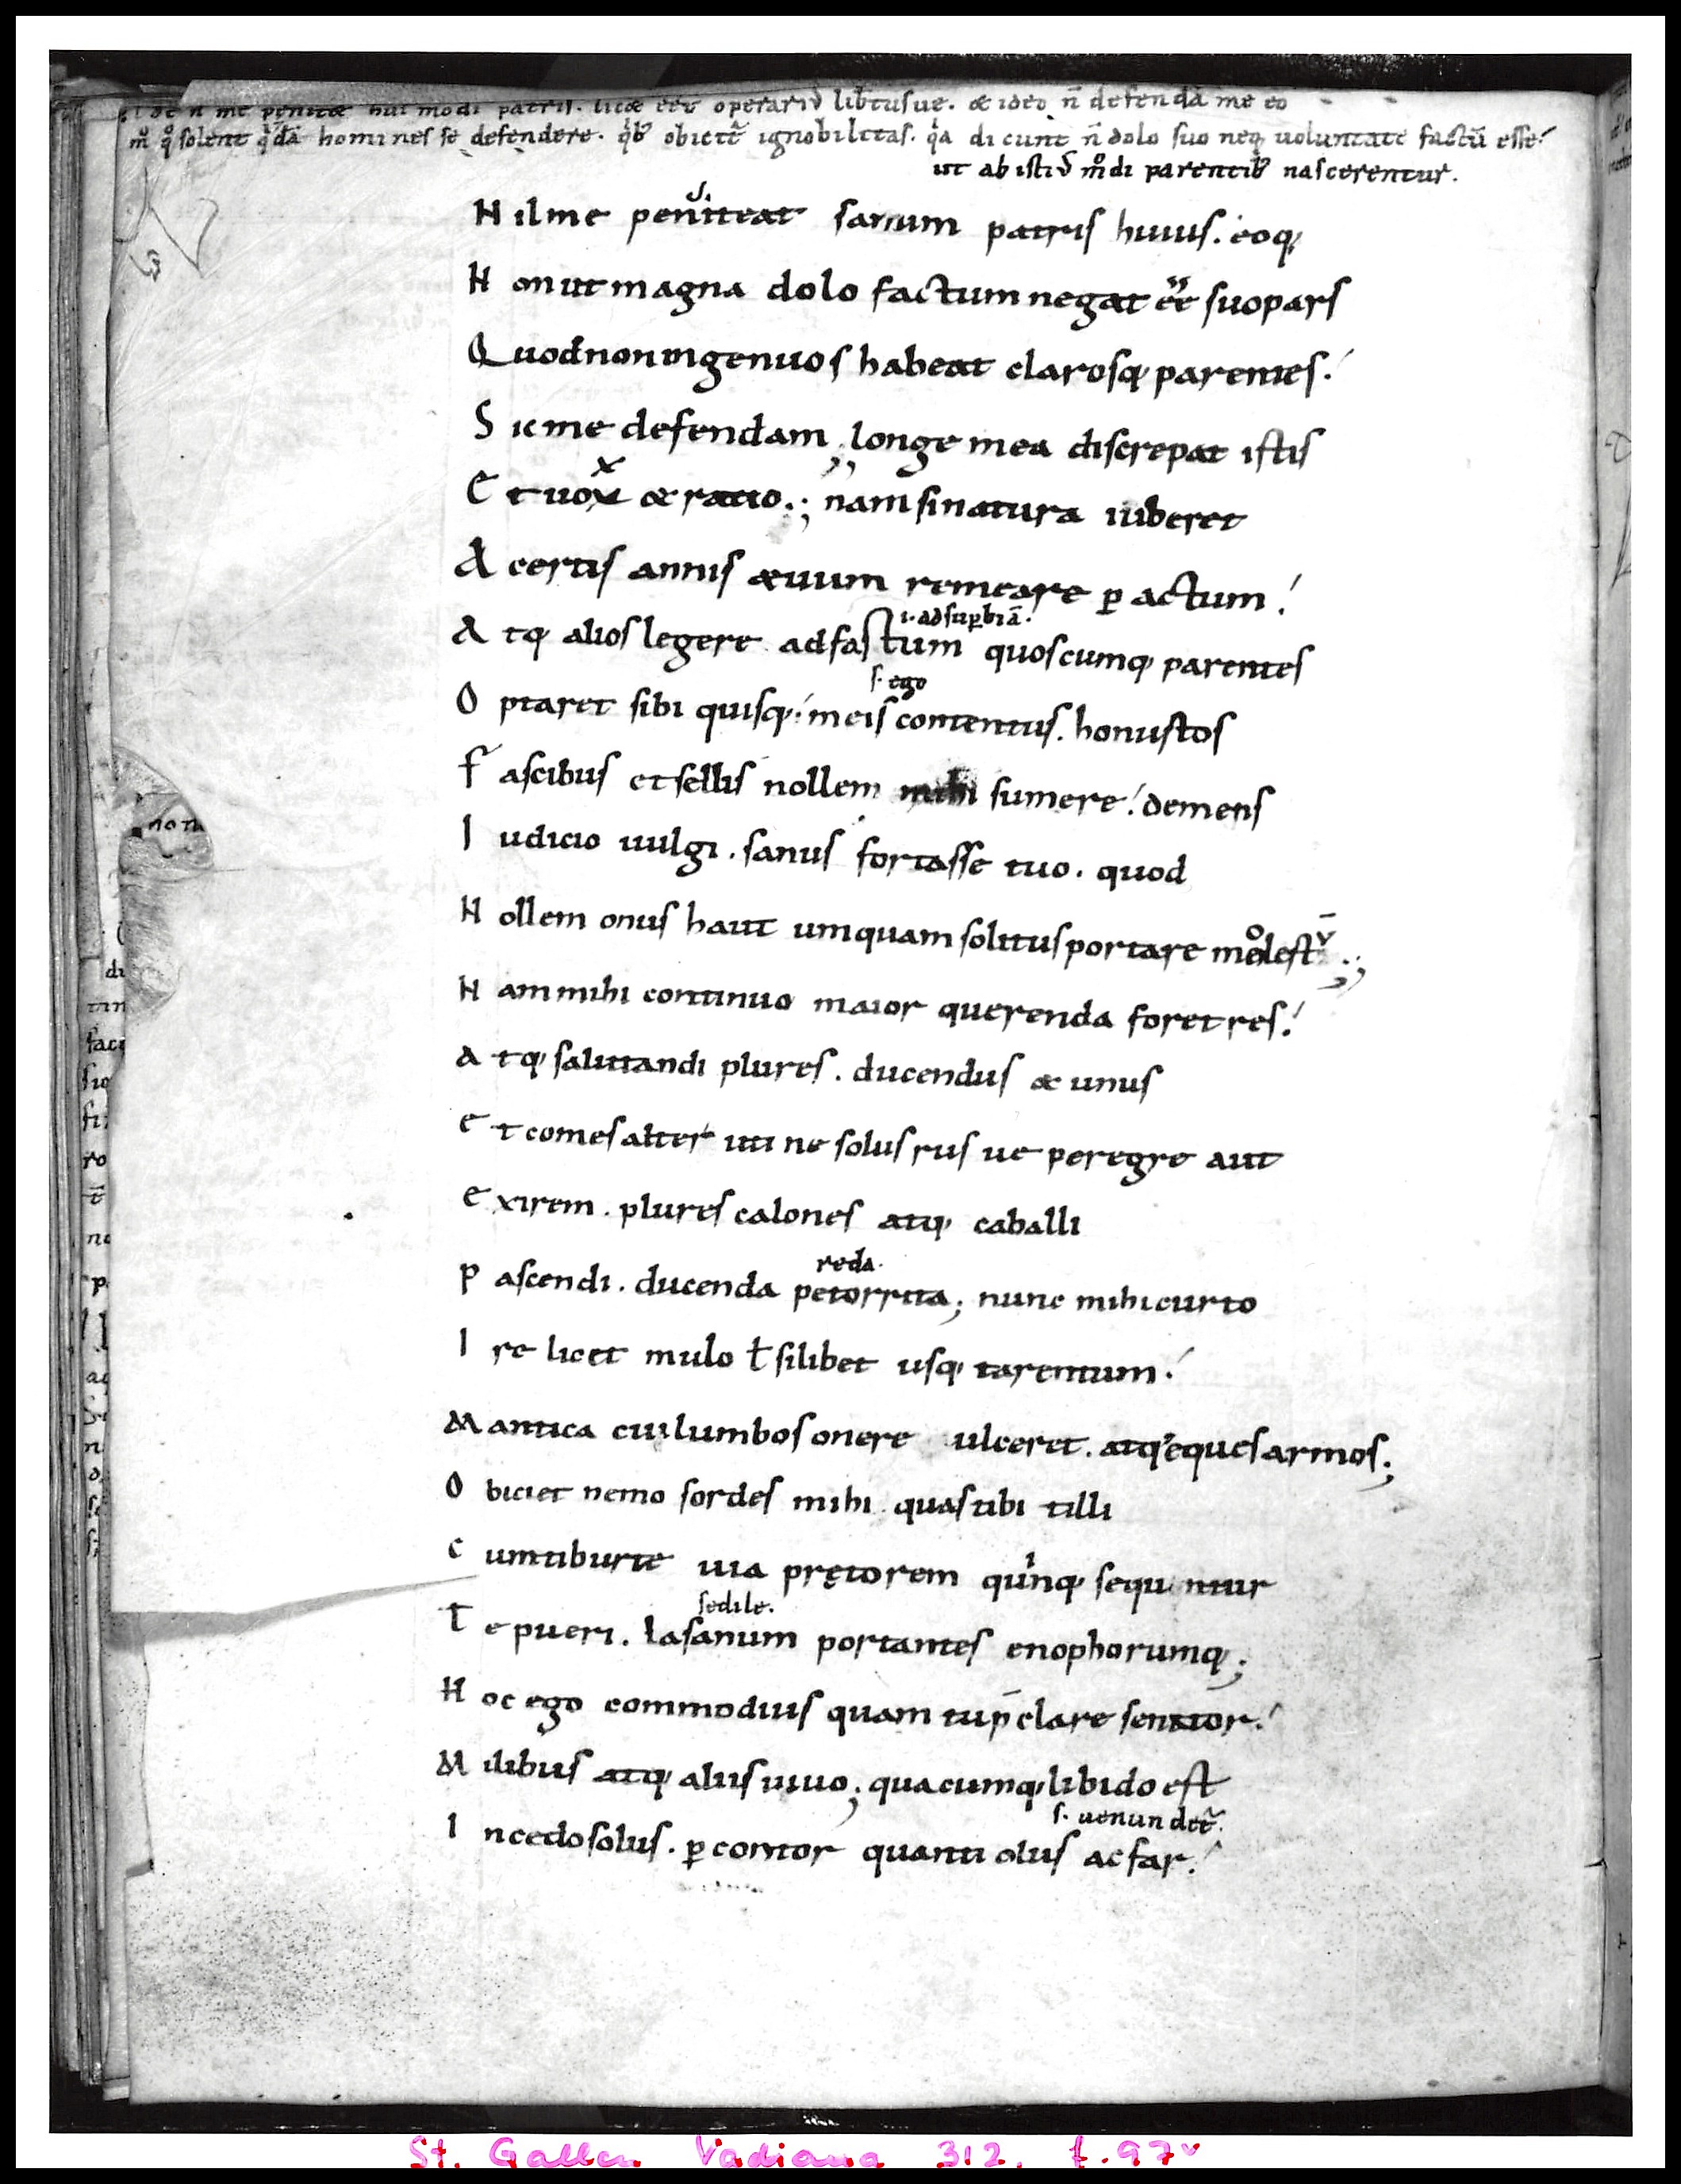 n me penitæ hui modi patris. licæ eēt operariꝰ libtusue. æ ideo n̄ defendā me eo
m̊ qͦ solent qͥdā homines se defendere. qͥbꝰ obicit̄ ignobilitas. qͥa dicunt n̄ dolo suo neq; uoluntate factū esse
ut ab istiꝰ m̊di parentibꝰ nascerentur.
Nil me peniteat sanum patris huius. eoq;
Non ut magna dolo factum negat eē suo pars
Quod non ingenuos habeat clarosq; parentes.
Sic me defendam, longe mea discrepat istis
x
Et uox æ ratio.; nam si natura iuberet
A certis annis æuum remeare ꝑactum!
.i. ad suꝑbiā.
Atq; alios legere ad fastum quoscumq; parentes
s. ego
Optaret sibi quisq; meis contentus. honustos
Fascibus et sellis nollem mihi sumere! demens
Iudicio uulgi. sanus fortasse tuo. quod
Nollem onus haut umquam solitus portare molestū.;
Nam mihi continuo maior querenda foret res!
Atq; salutandi plures. ducendus æ unus
Et comes alter uti ne solus rus ue peregre aut
Exirem. plures calones atq; caballi
reda.
Pascendi. ducenda petorrita; nunc mihi curto
Ire licet mulo ł si libet usq; tarentum.
Mantica cui lumbos onere ulceret. atq; eques armos;
Obiciet nemo sordes mihi quas tibi tilli
Cum tiburte uia prętorem quinq; sequntur
sedile.
Te pueri. lasanum portantes enophorumq;
Hoc ego commodius quam tu p̄clare senator!
Milibus atq; aliis uiuo; quacumq; libido est
s. uenundet̄.
Incedo solus. ꝑcontor quanti olus ac far!
nota
di
tin
face
sio
ro
no
p
St. Gallen Vadiana 312. f. 97v